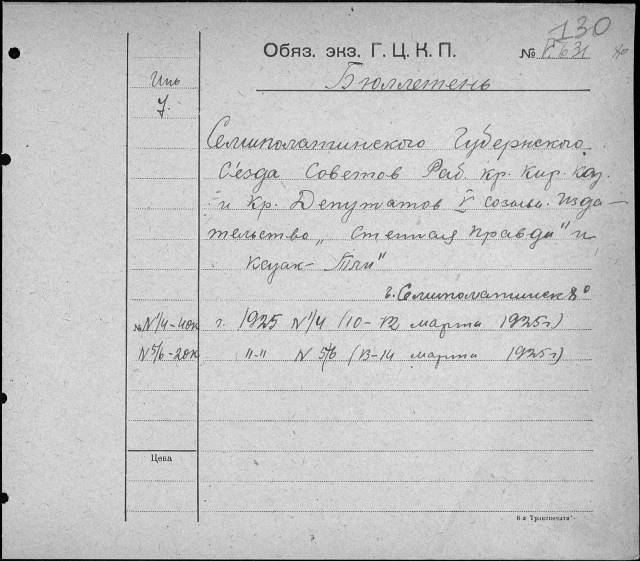 130
Обяз. экз. Г. Ц. К. П. №
Бюллетень
7.
Семиполатинского Губернского
С'езда Советов Раб. кр. кир. каз.
и кр. Депутатов V созыва. Изда-
тельство „Степная Правда" и
Казак-Тли"
г. Семиполатинск 8°
№ N 1/4 - 4 ок г. 1925 N 1/4 (10-12 марта 1925 г)
N 5/6 - 2 ок "-" N 5/6 (13-14 марта 1925 г)
Цена
6-я "Транспечати".